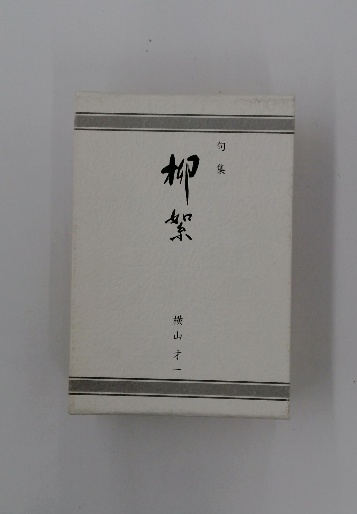 句集
柳絮
横山才一